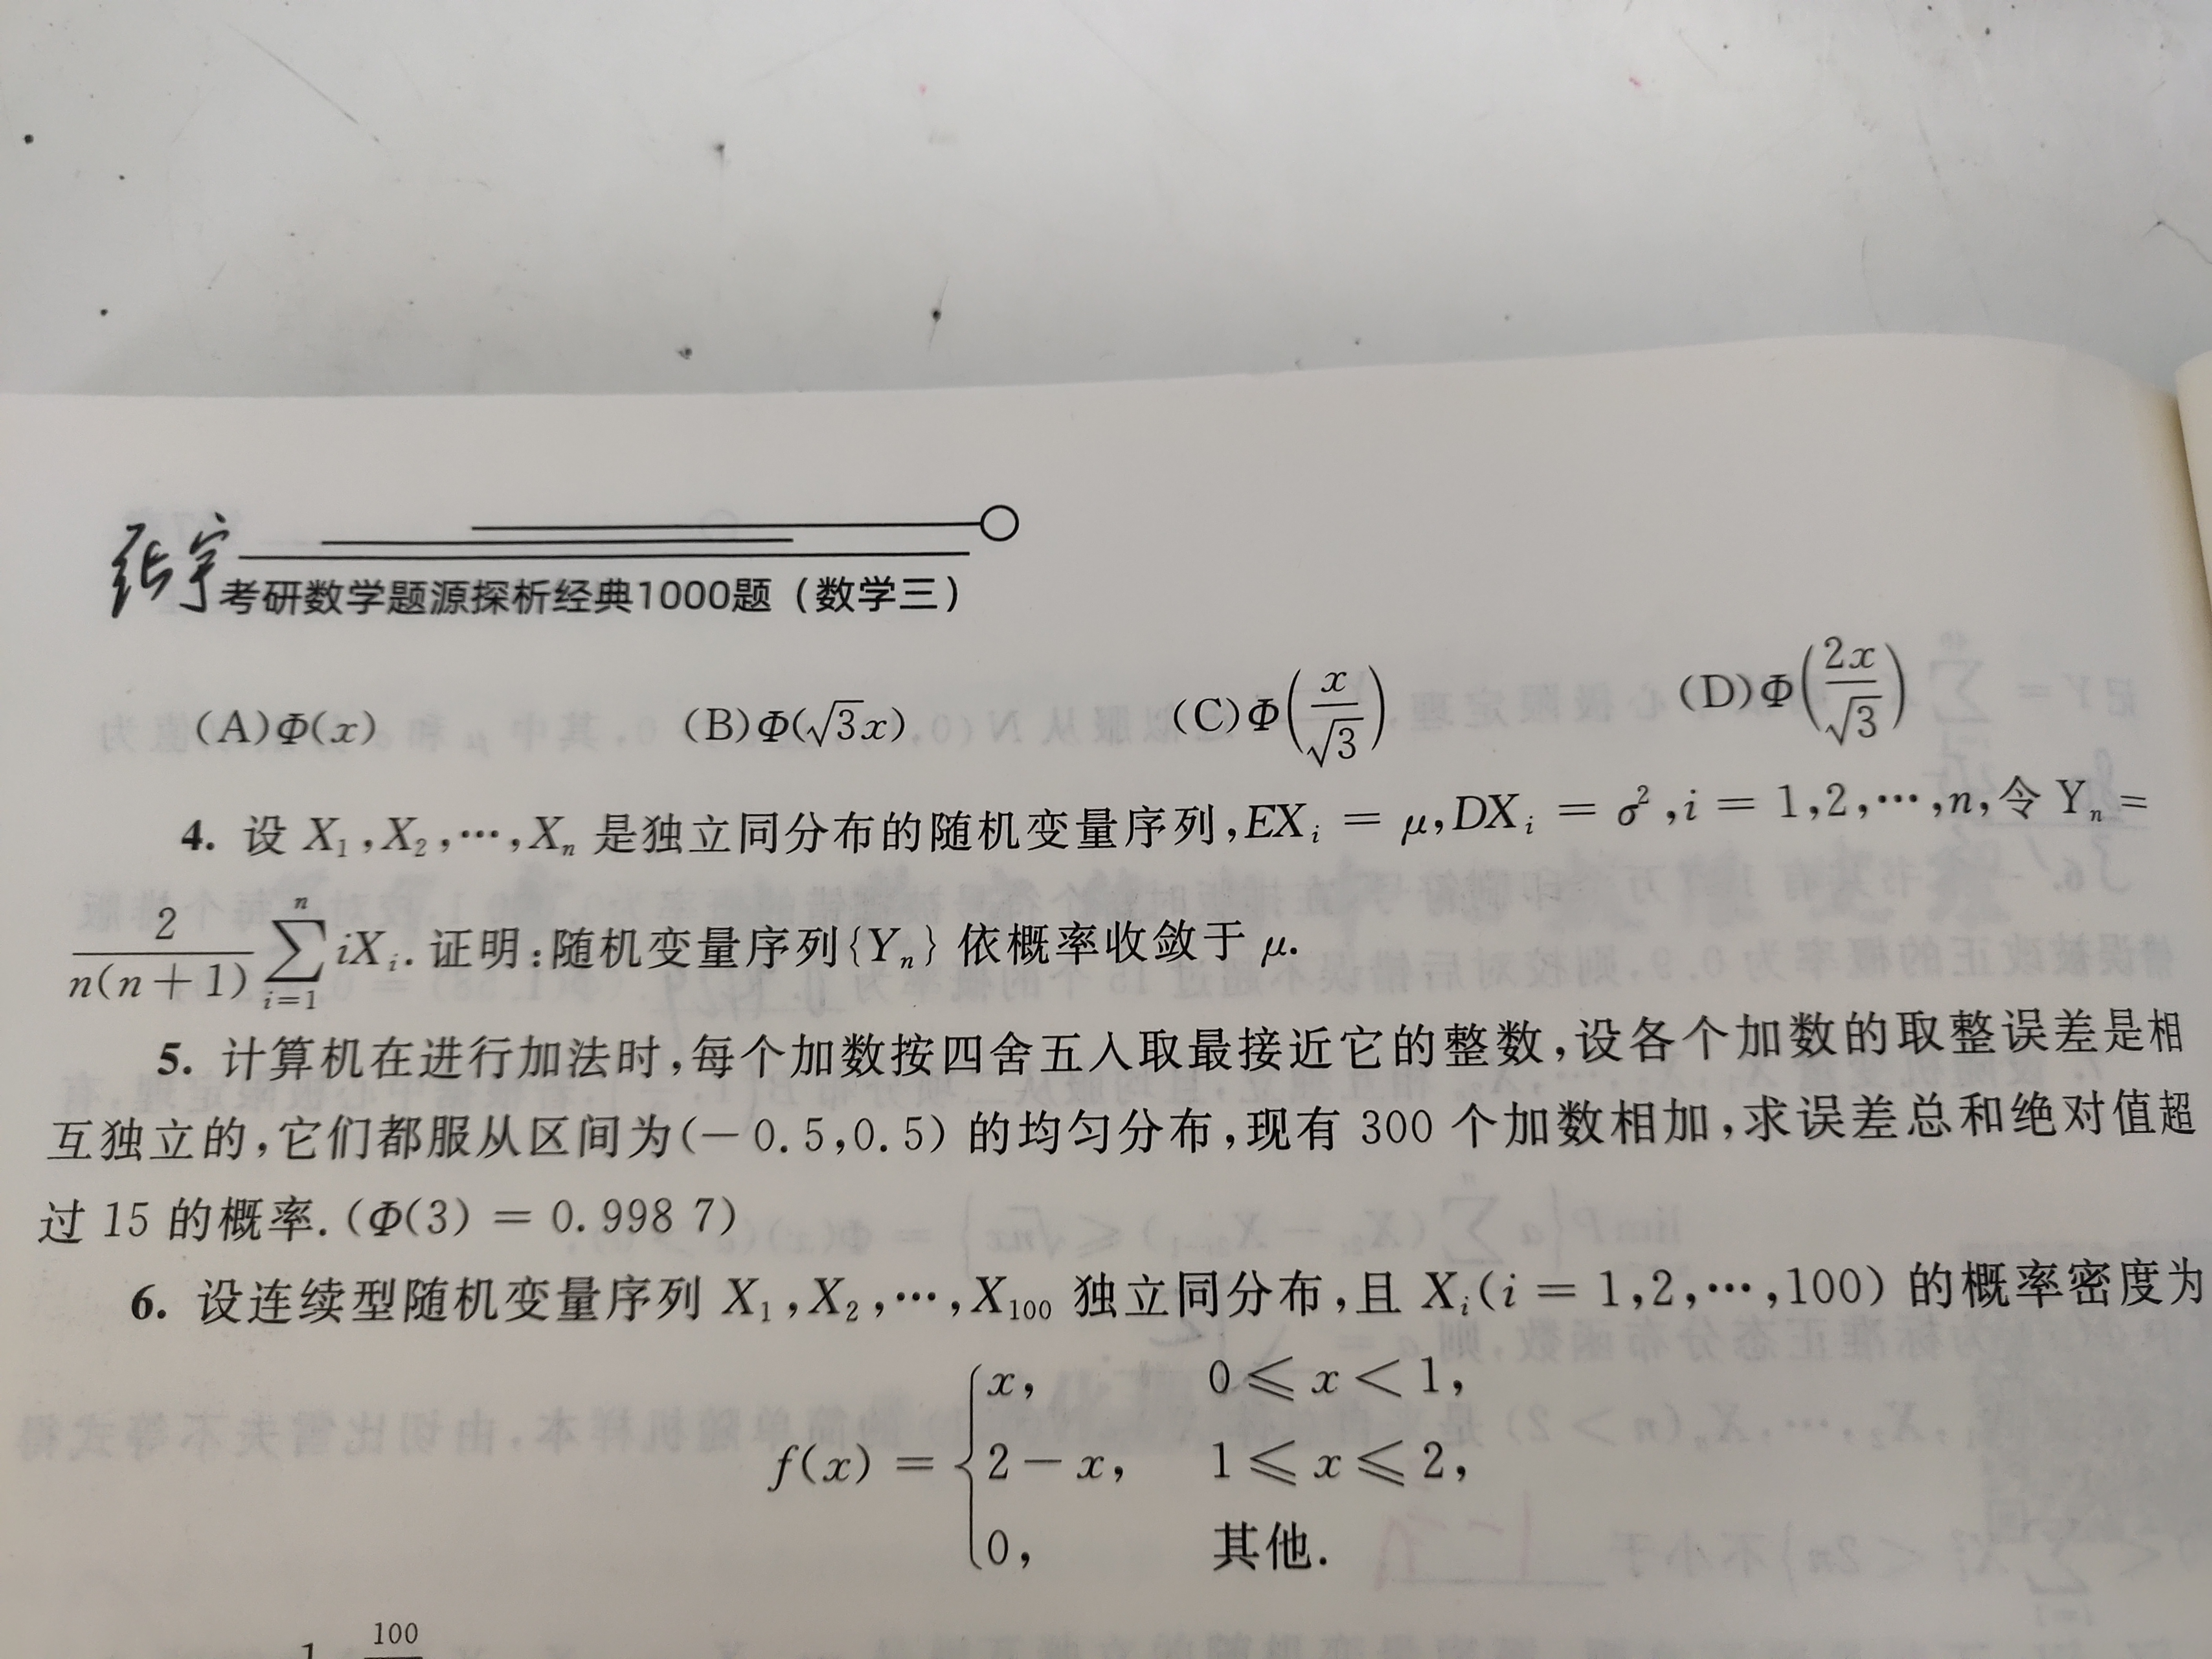 张宇
考研数学题源探析经典1000题（数学三）
(A)Φ(x) (B)Φ(√3x) (C)Φ(x/√3) (D)Φ(2x/√3)
4. 设 X₁,X₂,…,Xₙ 是独立同分布的随机变量序列,EXᵢ = μ,DXᵢ = σ²,i = 1,2,…,n,令 Yₙ =
2/(n(n+1)) ∑ᵢ₌₁ⁿ iXᵢ. 证明:随机变量序列{Yₙ} 依概率收敛于 μ.
5. 计算机在进行加法时,每个加数按四舍五入取最接近它的整数,设各个加数的取整误差是相
互独立的,它们都服从区间为(−0.5,0.5) 的均匀分布,现有 300 个加数相加,求误差总和绝对值超
过 15 的概率.(Φ(3) = 0.998 7)
6. 设连续型随机变量序列 X₁,X₂,…,X₁₀₀ 独立同分布,且 Xᵢ(i = 1,2,…,100) 的概率密度为
f(x) = { x, 0 ⩽ x < 1,
2 − x, 1 ⩽ x ⩽ 2,
0, 其他.
100